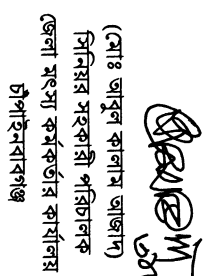 (মোঃ আবুল কালাম আজাদ)
সিনিয়র সহকারী পরিচালক
জেলা মৎস্য কর্মকর্তার কার্যালয়
চাঁপাইনবাবগঞ্জ